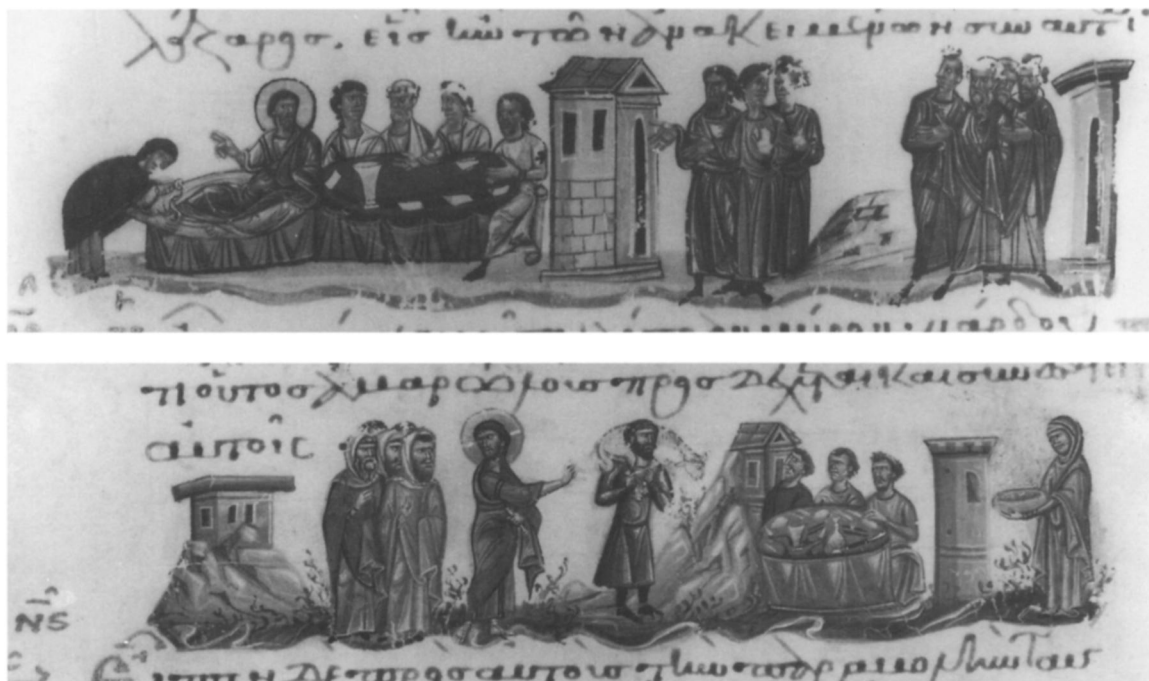 λάζαρος. εἷς ἦν τῶν ἀνακειμένων σὺν αὐτ
μύρου νάρδου
οὗτος ἁμαρτωλοὺς προσδέχεται καὶ συνεσθίει
αὐτοῖς
νς
Εἶπεν δὲ πρὸς αὐτοὺς τὴν παραβολὴν ταύ